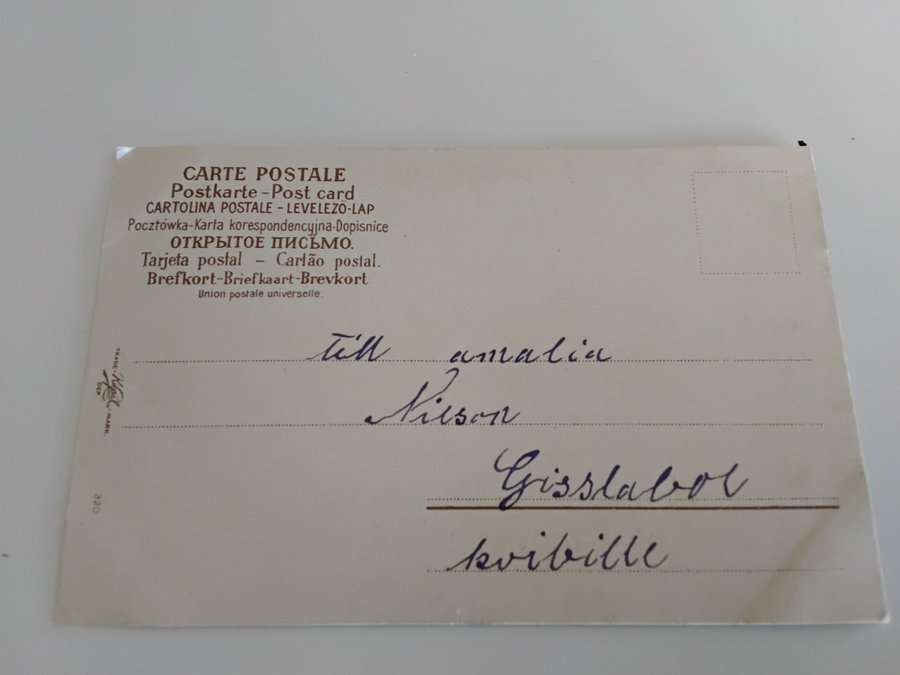 CARTE POSTALE
Postkarte - Post card
CARTOLINA POSTALE - LEVELEZÖ-LAP
Pocztówka-Karta korespondencyjna-Dopisnice
ОТКРЫТОЕ ПИСЬМО.
Tarjeta postal - Cartão postal.
Brefkort-Briefkaart-Brevkort
Union postale universelle.
till amalia
Nilson
Gisslabol
kvibille
TRADE- MARK.
320